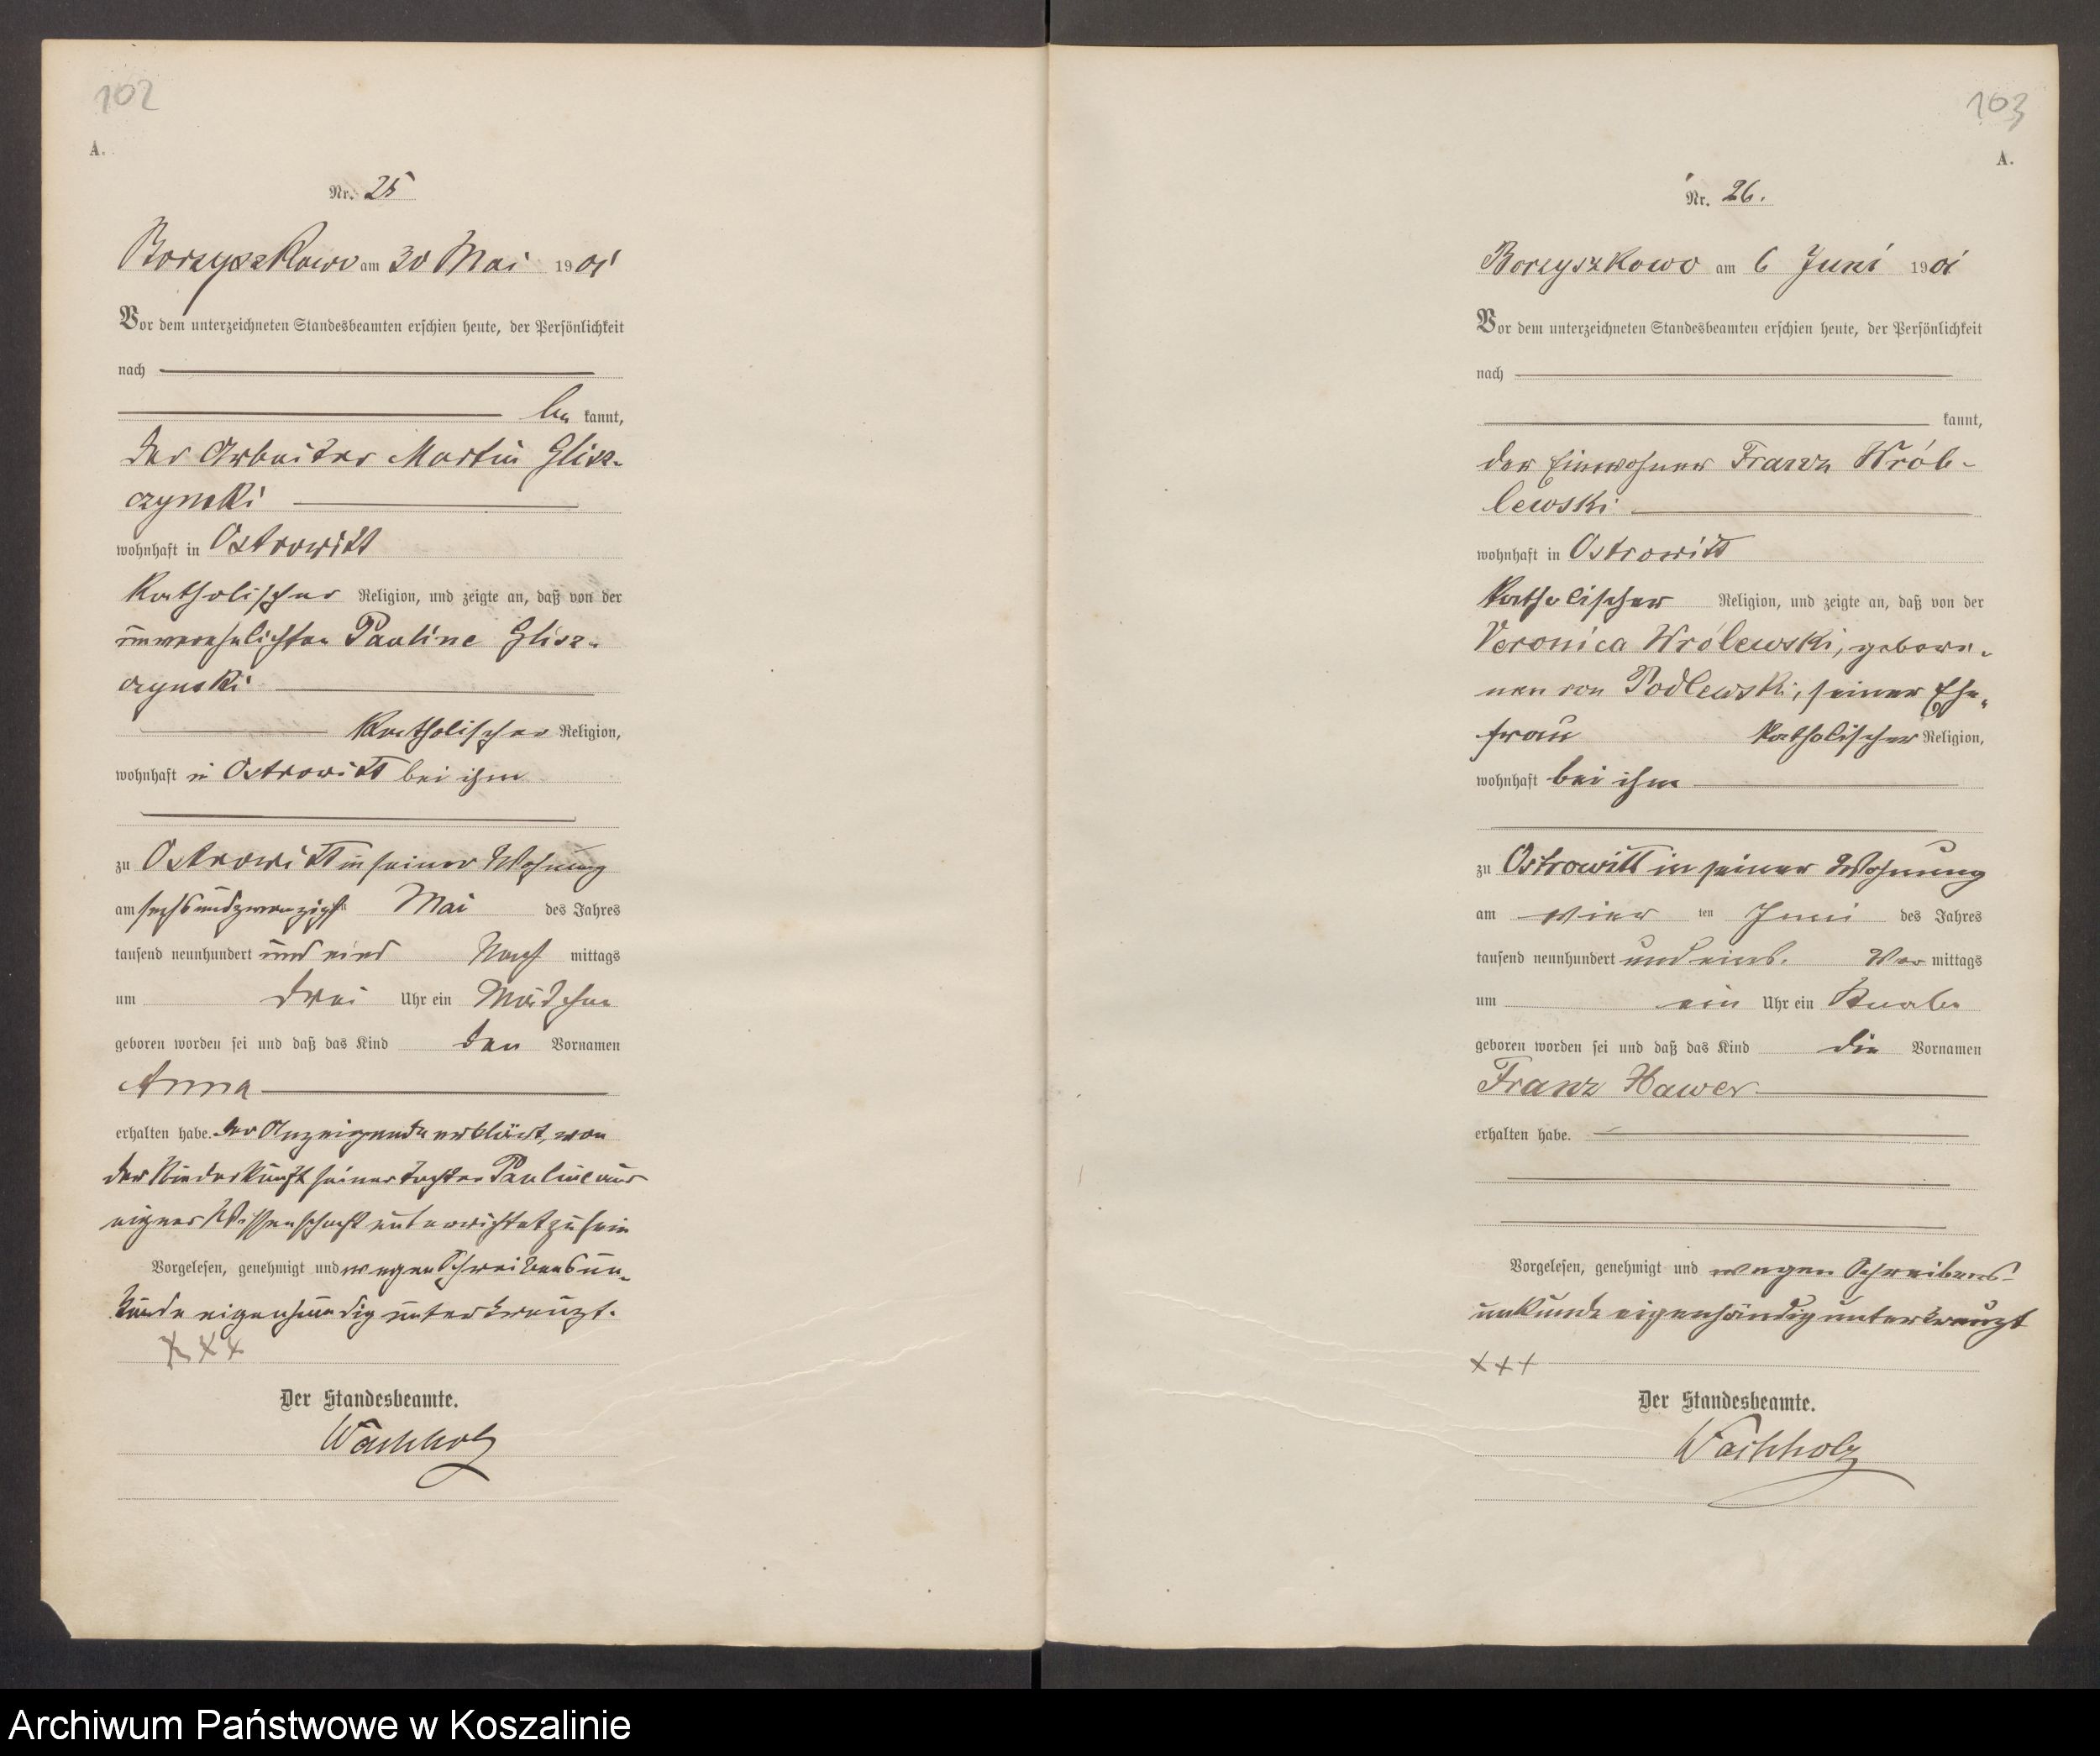 102
A.
Nr. 25
Borzyszkowo am 30 Mai 1901
Vor dem unterzeichneten Standesbeamten erschien heute, der Persönlichkeit
nach
be kannt,
der Arbeiter Martin Glisz-
czynski
wohnhaft in Ostrowitt
Katholischer Religion, und zeigte an, daß von der
unverehelichten Pauline Glisz-
czynski
Katholischer Religion,
wohnhaft in Ostrowitt bei ihm
zu Ostrowitt in seiner Wohnung
am sechsundzwanzigsten Mai des Jahres
tausend neunhundert und eins Nach mittags
um drei Uhr ein Mädchen
geboren worden sei und daß das Kind den Vornamen
Anna
erhalten habe. Der Anzeigende erklärt, von
der Niederkunft seiner Tochter Pauline aus
eigner Wissenschaft unterrichtet zu sein
Vorgelesen, genehmigt und wegen Schreibensun-
kunde eigenhändig unterkreuzt.
XXX
Der Standesbeamte.
Wachholz
103
A.
Nr. 26.
Borzyszkowo am 6 Juni 1901
Vor dem unterzeichneten Standesbeamten erschien heute, der Persönlichkeit
nach
kannt,
der Einwohner Franz Wrób-
lewski
wohnhaft in Ostrowitt
katholischer Religion, und zeigte an, daß von der
Veronica Wrólewski, gebore-
nen von Podlewski, seiner Ehe-
frau katholischer Religion,
wohnhaft bei ihm
zu Ostrowitt in seiner Wohnung
am vier ten Juni des Jahres
tausend neunhundert und eins. Vor mittags
um ein Uhr ein Knabe
geboren worden sei und daß das Kind die Vornamen
Franz Xawer
erhalten habe.
Vorgelesen, genehmigt und wegen Schreibens-
unkunde eigenhändig unterkreuzt
+++
Der Standesbeamte.
Wachholz
Archiwum Państwowe w Koszalinie